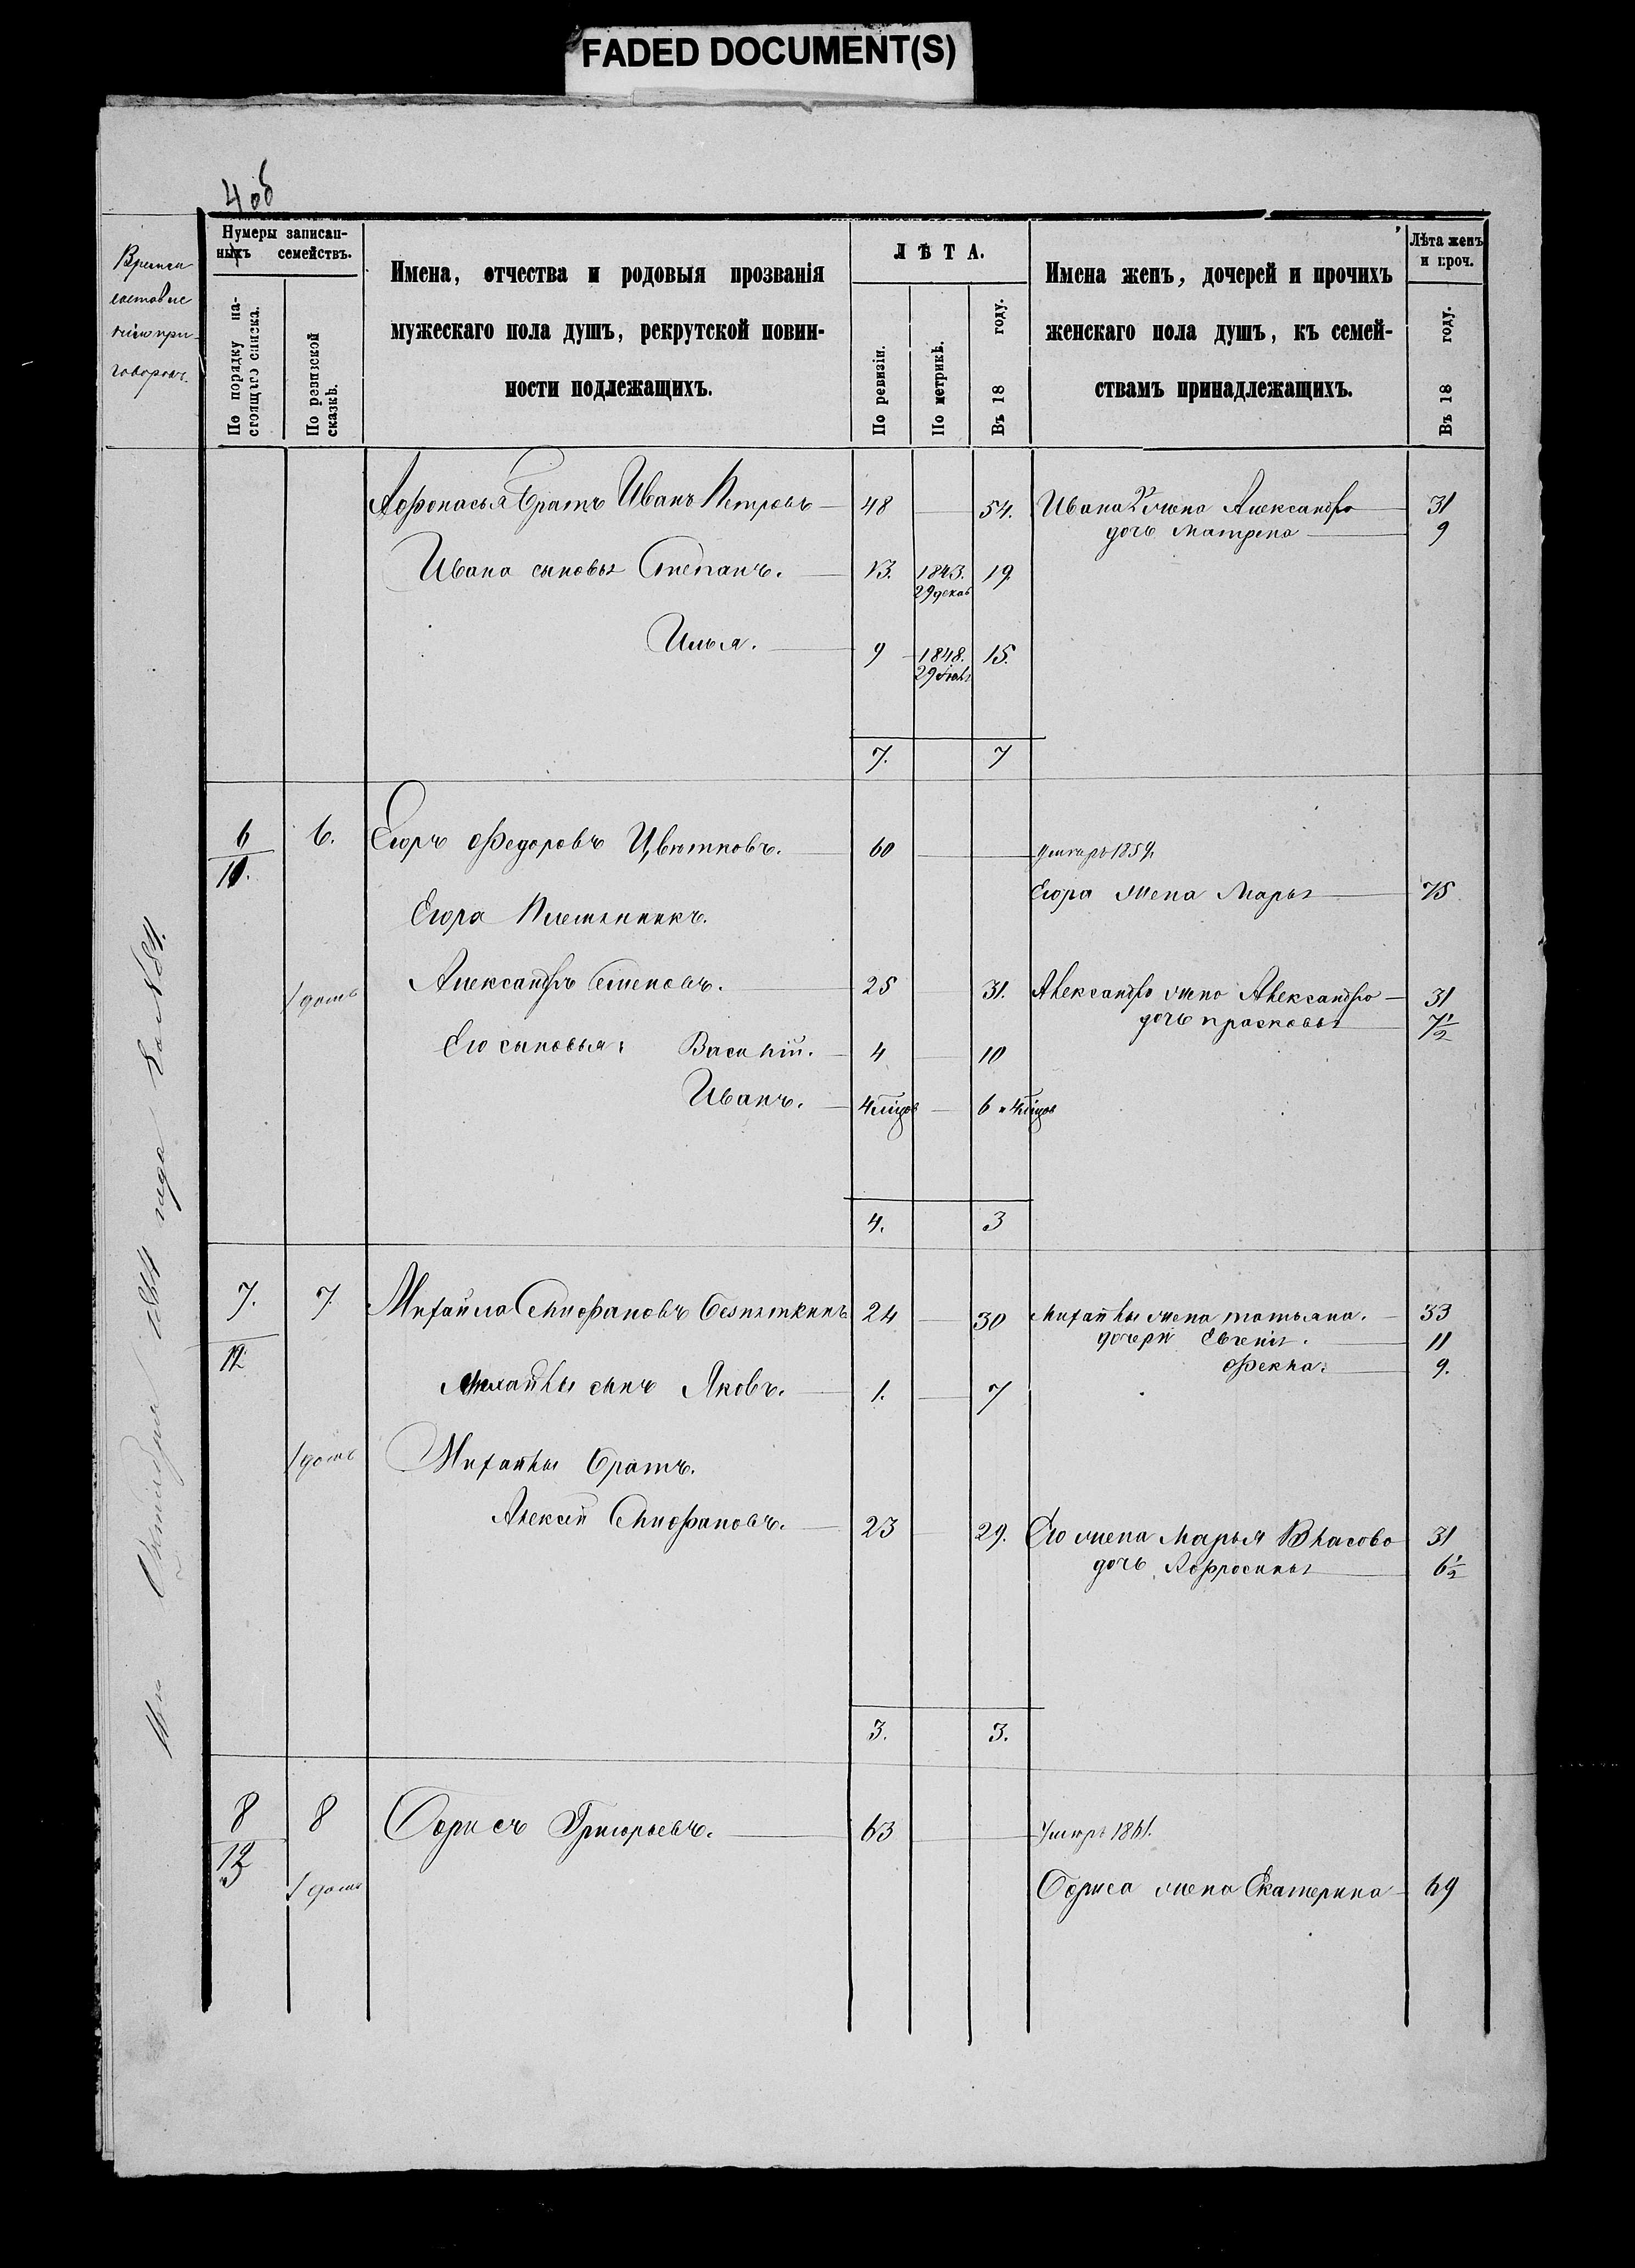 FADED DOCUMENT(S)
4 об
Нумеры записан-
ныхъ семействъ.
По порядку на-
стоящаго списка.
По ревизской
сказкѣ.
Имена, отчества и родовыя прозванія
мужескаго пола душъ, рекрутской повин-
ности подлежащихъ.
ЛѢТА.
По ревизіи.
По метрикѣ.
Въ 18 году.
Имена женъ, дочерей и прочихъ
женскаго пола душъ, къ семей-
ствамъ принадлежащихъ.
Лѣта женъ
и проч.
Въ 18 году.
Время
составле
нія при
говоровъ.
Афонасья братъ Иванъ Петровъ 48 54. Ивана 2 жена Александра 31
дочь Матрена 9
Ивана сыновья Степанъ. 13. 1843. 19.
29 декаб
Илья. 9 1848. 15.
29
7. 7
6 6. Егоръ Федоровъ Цвѣтковъ. 60 умеръ 1859.
Егора жена Марья 75
Егора Племянникъ.
1 домъ Александръ Семеновъ. 25 31. Александра жена Александра 31
дочь Прасковья 7½
Его сыновья: Василій. 4 10
Иванъ. 4 6 и 4
4. 3
7. 7. Михайла 24 30 Михайлы жена Татьяна. 33
дочери Евгенія. 11
Фекла. 9.
Михайлы сынъ Яковъ. 1. 7
1 домъ Михайлы братъ.
Алексѣй 23 29. Его жена Марья Власова 31
дочь Афросинья 6½
3. 3.
8 8 Борисъ Григорьевъ. 63 умеръ 1861.
1 домъ Бориса жена Екатерина 69